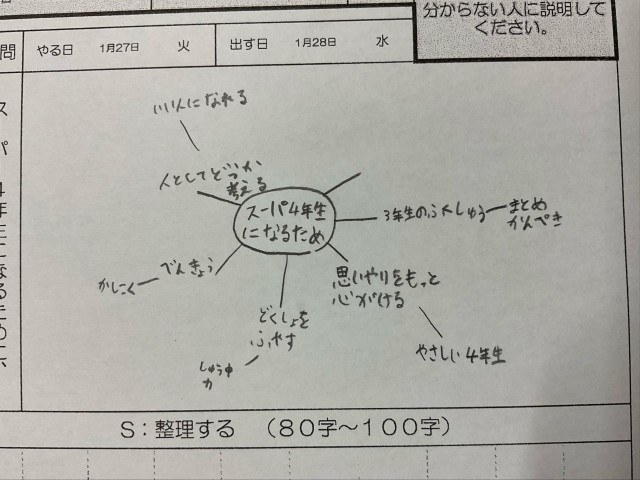 分からない人に説明して
ください。
問
やる日 1月27日 火 出す日 1月28日 水
いい人になれる
人としてどうか
考える
スーパ4年生
になるため
3年生のふくしゅう
まとめ
かんぺき
べんきょう
かしこく
思いやりをもっと
心がける
やさしい4年生
どくしょを
ふやす
しゅう中
力
S:整理する (80字~100字)